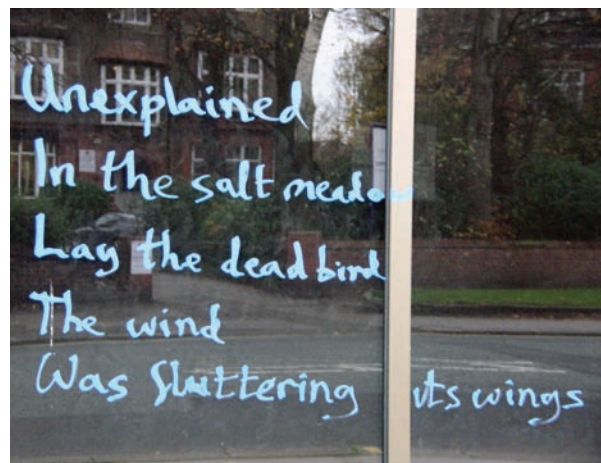 Unexplained
In the salt meadow
Lay the dead bird
The wind
Was fluttering its wings